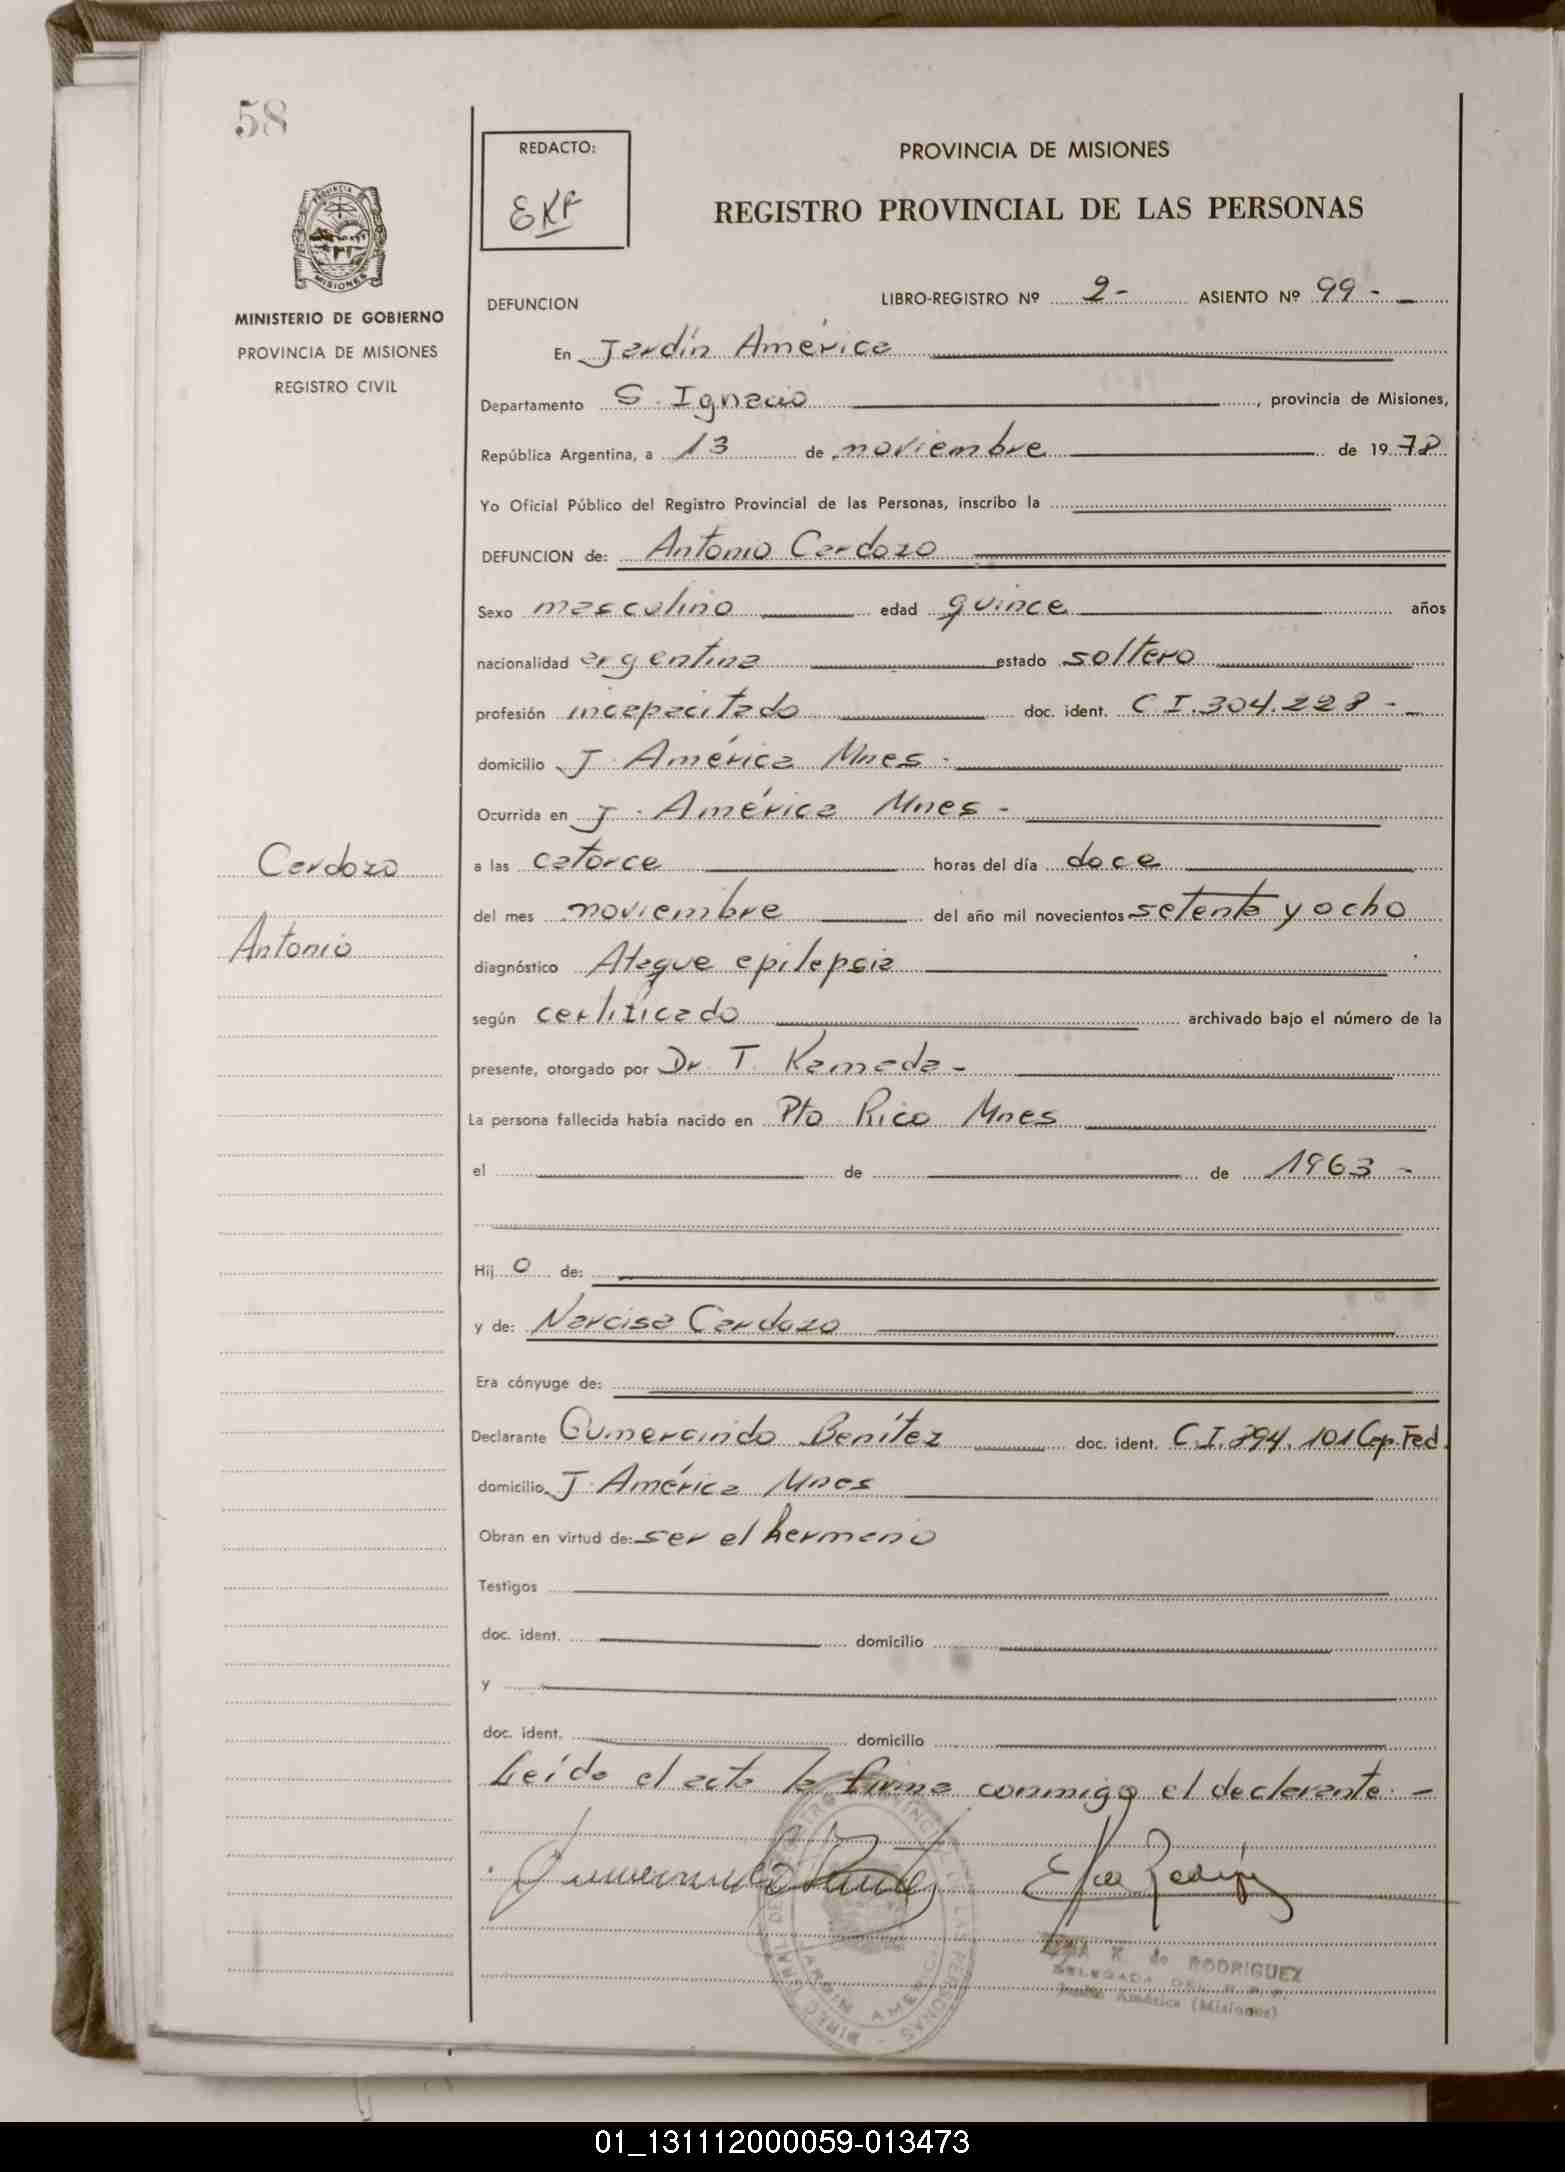 58
REDACTO:
EKR
PROVINCIA DE MISIONES
REGISTRO PROVINCIAL DE LAS PERSONAS
PROVINCIA DE
MISIONES
MINISTERIO DE GOBIERNO
PROVINCIA DE MISIONES
REGISTRO CIVIL
DEFUNCION
LIBRO-REGISTRO Nº 2- ASIENTO Nº 99-
En Jardín América
Departamento S. Ignacio, provincia de Misiones,
República Argentina, a 13 de noviembre de 1978
Yo Oficial Público del Registro Provincial de las Personas, inscribo la
DEFUNCION de: Antonio Cardozo
Sexo masculino edad quince años
nacionalidad argentina estado soltero
profesión incapacitado doc. ident. C.I. 304.228-
domicilio J. América Mnes-
Ocurrida en J. América Mnes-
Cardozo
Antonio
a las catorce horas del día doce
del mes noviembre del año mil novecientos setenta y ocho
diagnóstico Ataque epilepsia
según certificado archivado bajo el número de la
presente, otorgado por Dr. T. Kameda-
La persona fallecida había nacido en Pto Rico Mnes
el de de 1963-
Hij o de:
y de: Narcisa Cardozo
Era cónyuge de:
Declarante Gumercindo Benítez doc. ident. C.I. 894.101 Cap. Fed.
domicilio J. América Mnes
Obran en virtud de: ser el hermano
Testigos
doc. ident. domicilio
y
doc. ident. domicilio
Leída el acta la firma conmigo el declarante.-
K. de RODRIGUEZ
DELEGADA DEL R. P. P.
Jardín América (Misiones)
01_131112000059-013473